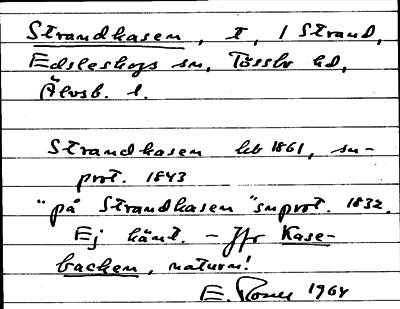 Strandkasen, t, / Strand,
Edsleskogs sn, Tössbo hd,
Älvsb. l.
Strandkasen hb 1861, sn-
prot. 1843
"på Strandkasen" snprot. 1832.
Ej känt. - Jfr Kase-
backen, naturn!
E. 1964